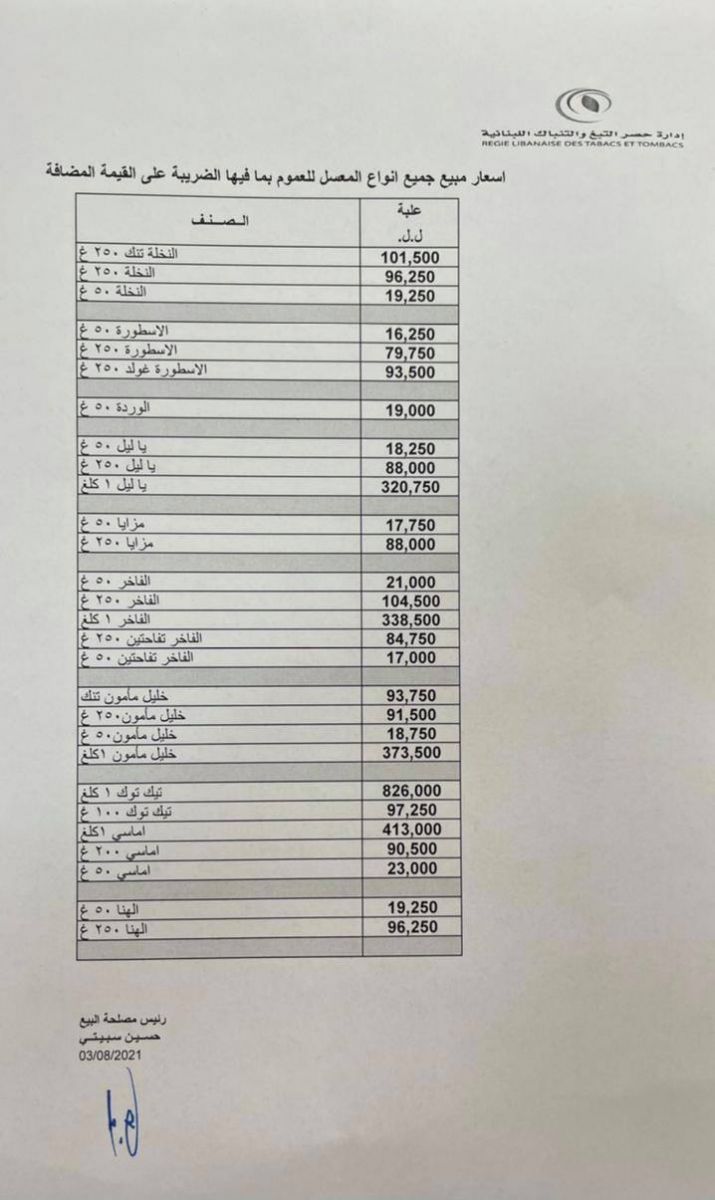 إدارة حصر التبغ والتنباك اللبنانية
REGIE LIBANAISE DES TABACS ET TOMBACS
اسعار مبيع جميع انواع المعسل للعموم بما فيها الضريبة على القيمة المضافة
علبة
ل.ل.
الـصـنـف
101,500 النخلة تنك ٢٥٠ غ
96,250 النخلة ٢٥٠ غ
19,250 النخلة ٥٠ غ
16,250 الاسطورة ٥٠ غ
79,750 الاسطورة ٢٥٠ غ
93,500 الاسطورة غولد ٢٥٠ غ
19,000 الوردة ٥٠ غ
18,250 يا ليل ٥٠ غ
88,000 يا ليل ٢٥٠ غ
320,750 يا ليل ١ كلغ
17,750 مزايا ٥٠ غ
88,000 مزايا ٢٥٠ غ
21,000 الفاخر ٥٠ غ
104,500 الفاخر ٢٥٠ غ
338,500 الفاخر ١ كلغ
84,750 الفاخر تفاحتين ٢٥٠ غ
17,000 الفاخر تفاحتين ٥٠ غ
93,750 خليل مأمون تنك
91,500 خليل مأمون٢٥٠ غ
18,750 خليل مأمون٥٠ غ
373,500 خليل مأمون ١كلغ
826,000 تيك توك ١ كلغ
97,250 تيك توك ١٠٠ غ
413,000 اماسي ١كلغ
90,500 اماسي ٢٠٠ غ
23,000 اماسي ٥٠ غ
19,250 الهنا ٥٠ غ
96,250 الهنا ٢٥٠ غ
رئيس مصلحة البيع
حسـين سبيتـي
03/08/2021